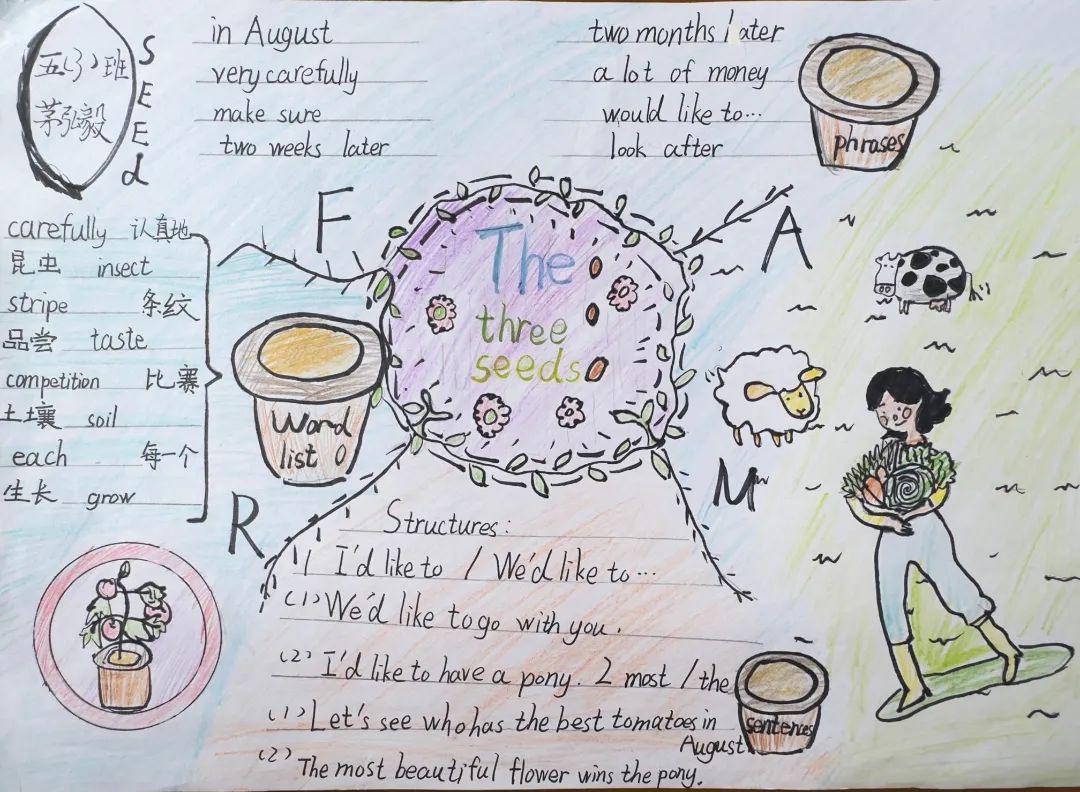 五(3)班
茅弘毅
SEEd
in August
very carefully
make sure
two weeks later
two months later
a lot of money
would like to...
look after
phrases
carefully 认真地
昆虫 insect
stripe 条纹
品尝 taste
competition 比赛
土壤 soil
each 每一个
生长 grow
Word
list
F
A
R
M
The
three
seeds
Structures:
1 I'd like to / We'd like to...
(1) We'd like to go with you.
(2) I'd like to have a pony. 2 most / the
(1) Let's see who has the best tomatoes in
August
(2) The most beautiful flower wins the pony.
sentences